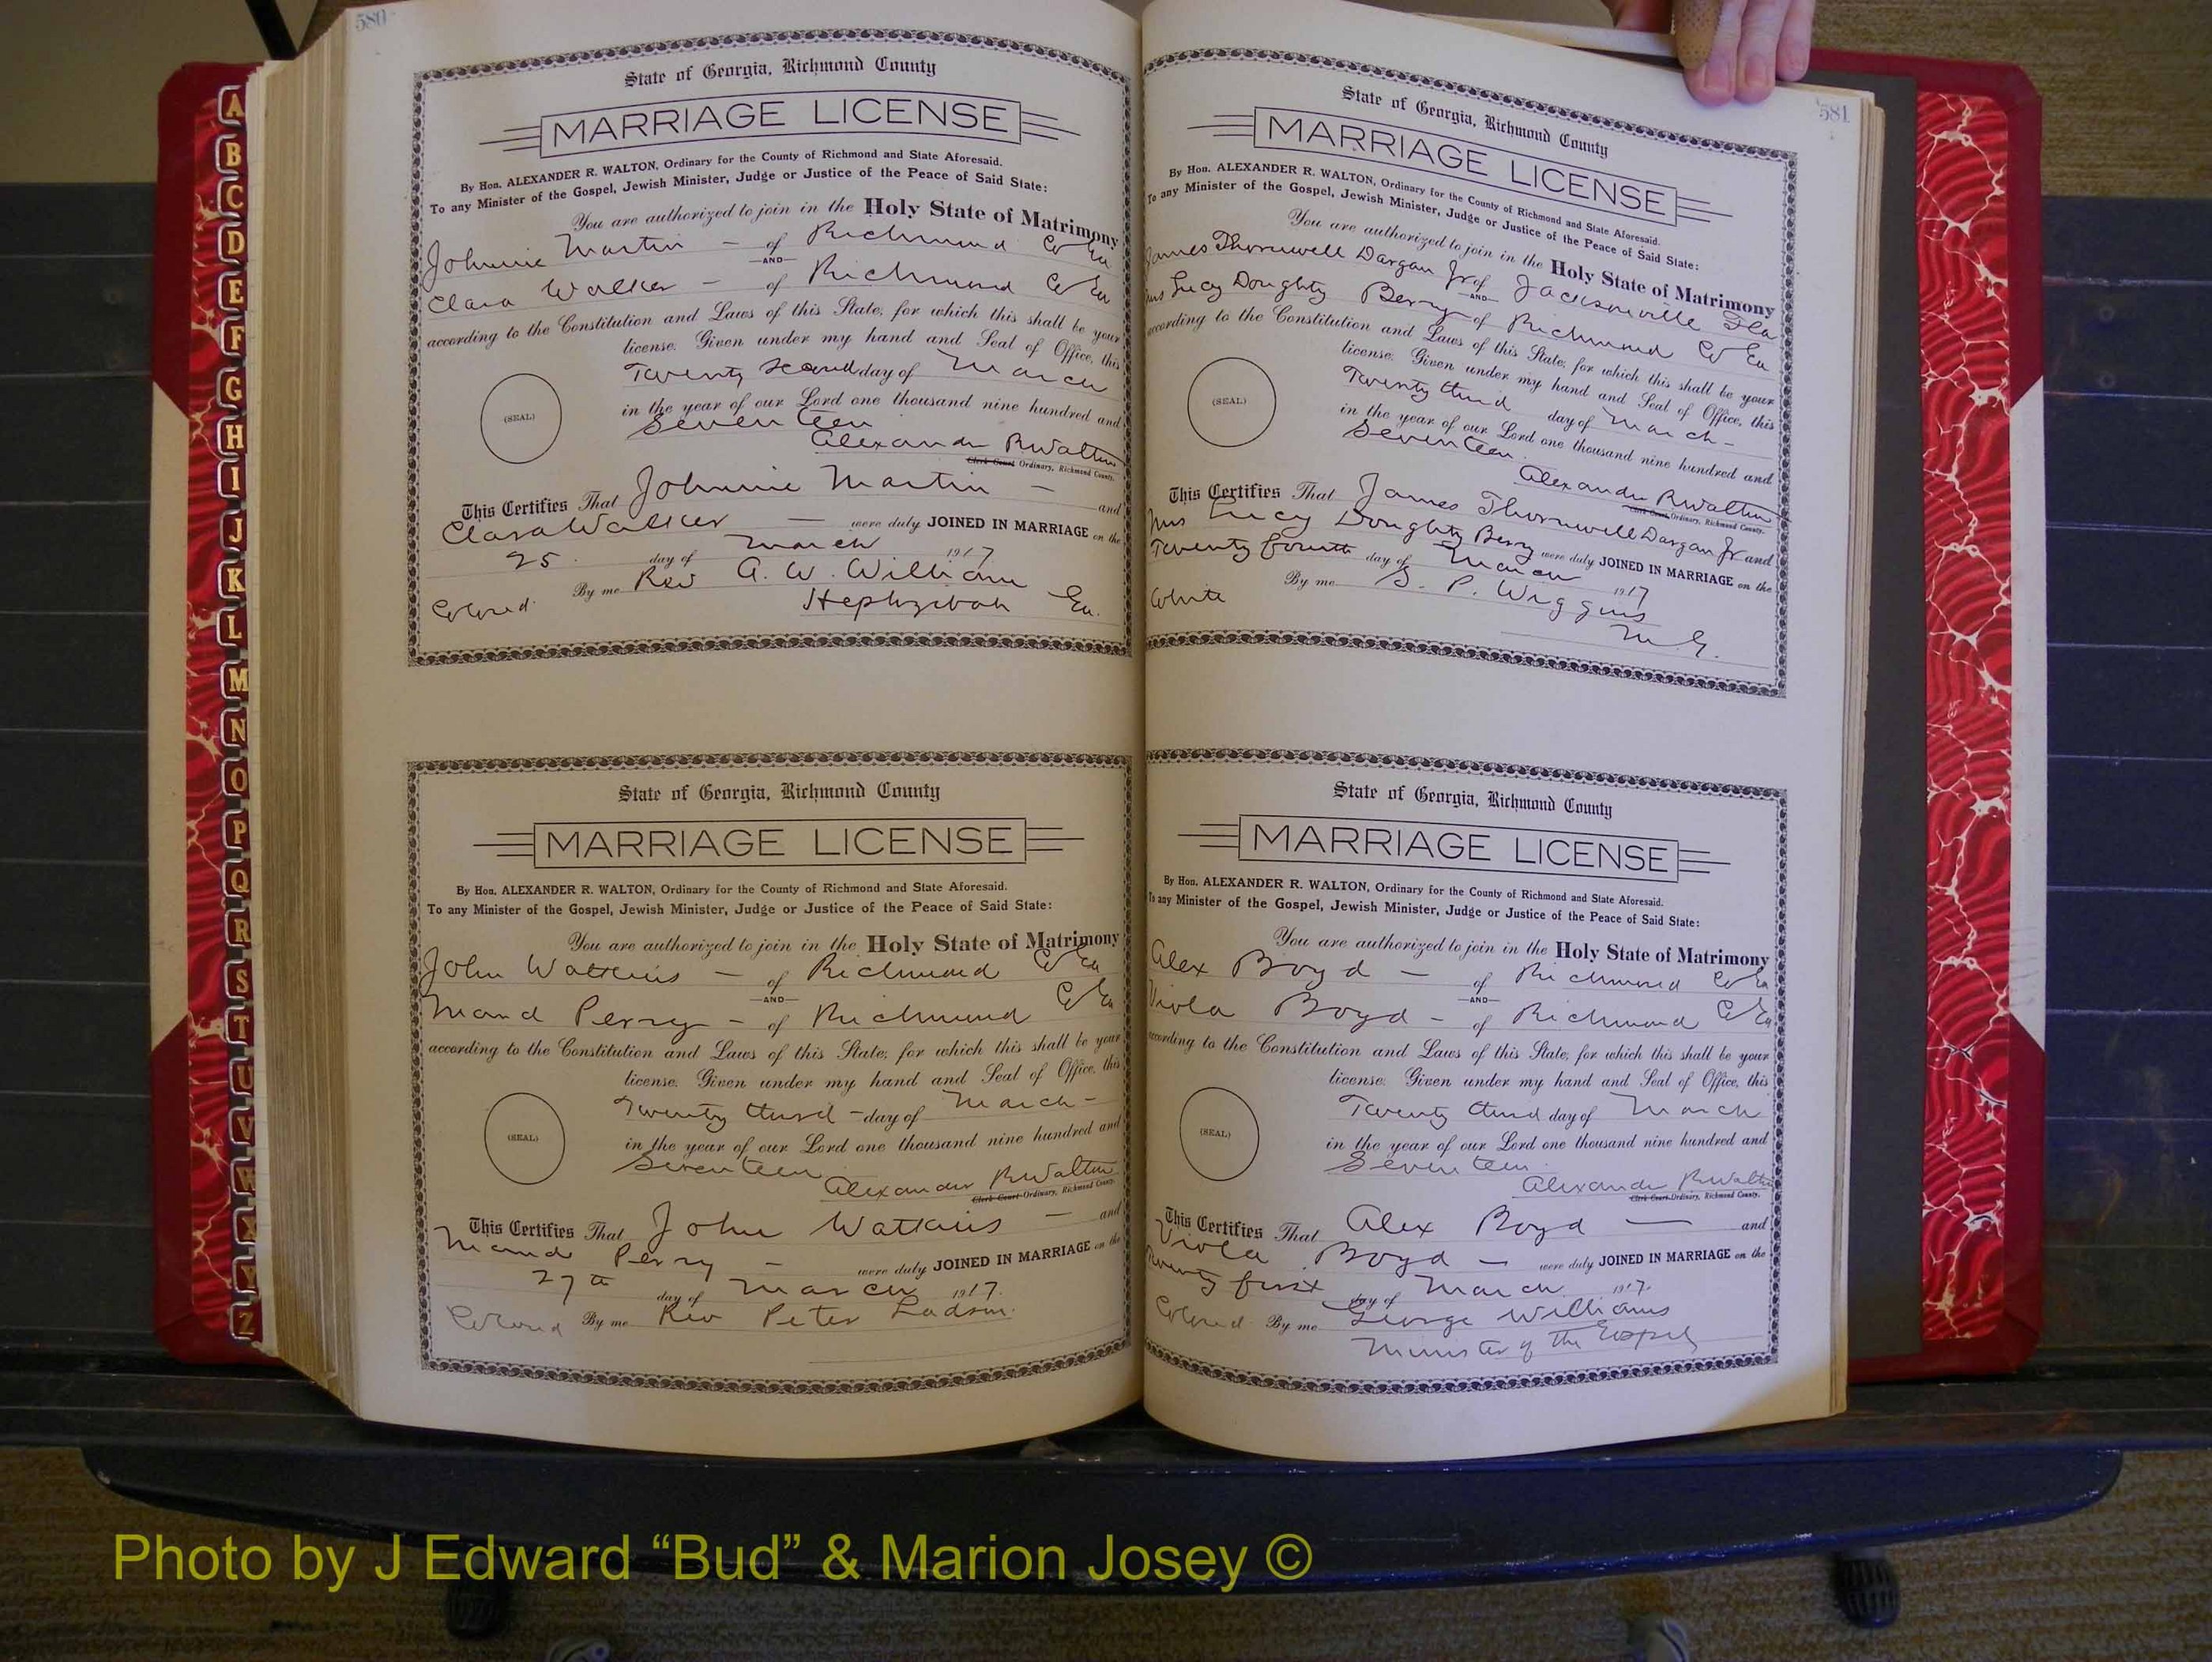 580
State of Georgia, Richmond County
MARRIAGE LICENSE
By Hon. ALEXANDER R. WALTON, Ordinary for the County of Richmond and State Aforesaid.
To any Minister of the Gospel, Jewish Minister, Judge or Justice of the Peace of Said State:
You are authorized to join in the Holy State of Matrimony
Johnnie Martin – of Richmond Co Ga
AND
Clara Walker – of Richmond Co Ga
according to the Constitution and Laws of this State; for which this shall be your
license. Given under my hand and Seal of Office, this
Twenty second day of March
in the year of our Lord one thousand nine hundred and
(SEAL)
Seventeen
Alexander R Walton
Clerk Court Ordinary, Richmond County.
This Certifies That Johnnie Martin – and
Clara Walker – were duly JOINED IN MARRIAGE on the
25 day of March 1917
Colored. By me Rev A. W. William
Hephzibah Ga.
State of Georgia, Richmond County
MARRIAGE LICENSE
By Hon. ALEXANDER R. WALTON, Ordinary for the County of Richmond and State Aforesaid.
To any Minister of the Gospel, Jewish Minister, Judge or Justice of the Peace of Said State:
You are authorized to join in the Holy State of Matrimony
John Watkins – of Richmond Co Ga
AND
Maud Perry – of Richmond Co Ga
according to the Constitution and Laws of this State; for which this shall be your
license. Given under my hand and Seal of Office, this
Twenty third – day of March –
in the year of our Lord one thousand nine hundred and
(SEAL)
Seventeen
Alexander R Walton
Clerk Court Ordinary, Richmond County.
This Certifies That John Watkins – and
Maud Perry – were duly JOINED IN MARRIAGE on the
27th day of March 1917.
Colored By me Rev Peter Ladson.
581
State of Georgia, Richmond County
MARRIAGE LICENSE
By Hon. ALEXANDER R. WALTON, Ordinary for the County of Richmond and State Aforesaid.
To any Minister of the Gospel, Jewish Minister, Judge or Justice of the Peace of Said State:
You are authorized to join in the Holy State of Matrimony
James Thornwell Dargan Jr of Jacksonville Fla
AND
Mrs Lucy Doughty Berry of Richmond Co Ga
according to the Constitution and Laws of this State; for which this shall be your
license. Given under my hand and Seal of Office, this
Twenty third day of March –
in the year of our Lord one thousand nine hundred and
(SEAL)
Seventeen.
Alexander R Walton
Clerk Court Ordinary, Richmond County.
This Certifies That James Thornwell Dargan Jr and
Mrs Lucy Doughty Berry were duly JOINED IN MARRIAGE on the
Twenty fourth day of March 1917
White By me S. P. Wiggins
M.G.
State of Georgia, Richmond County
MARRIAGE LICENSE
By Hon. ALEXANDER R. WALTON, Ordinary for the County of Richmond and State Aforesaid.
To any Minister of the Gospel, Jewish Minister, Judge or Justice of the Peace of Said State:
You are authorized to join in the Holy State of Matrimony
Alex Boyd – of Richmond Co Ga
AND
Viola Boyd – of Richmond Co Ga
according to the Constitution and Laws of this State; for which this shall be your
license. Given under my hand and Seal of Office, this
Twenty third day of March
in the year of our Lord one thousand nine hundred and
(SEAL)
Seventeen.
Alexander R Walton
Clerk Court Ordinary, Richmond County.
This Certifies That Alex Boyd – and
Viola Boyd – were duly JOINED IN MARRIAGE on the
Twenty first day of March 1917.
Colored By me George Williams
Minister of the Gospel
A
B
C
D
E
F
G
H
I
J
K
L
M
N
O
P
Q
R
S
T
U
V
W
X
Y
Z
Photo by J Edward “Bud” & Marion Josey ©